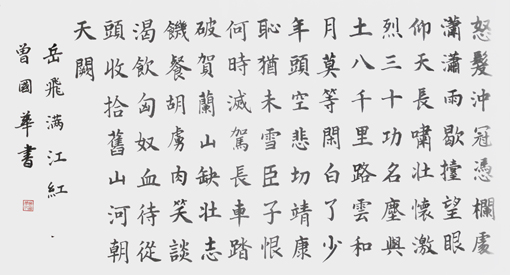 怒髮沖冠憑欄處
瀟瀟雨歇擡望眼
仰天長嘯壯懷激
烈三十功名塵與
土八千里路雲和
月莫等閑白了少
年頭空悲切靖康
恥猶未雪臣子恨
何時滅駕長車踏
破賀蘭山缺壯志
饑餐胡虜肉笑談
渴飲匈奴血待從
頭收拾舊山河朝
天闕
岳飛满江紅．
曾國華書